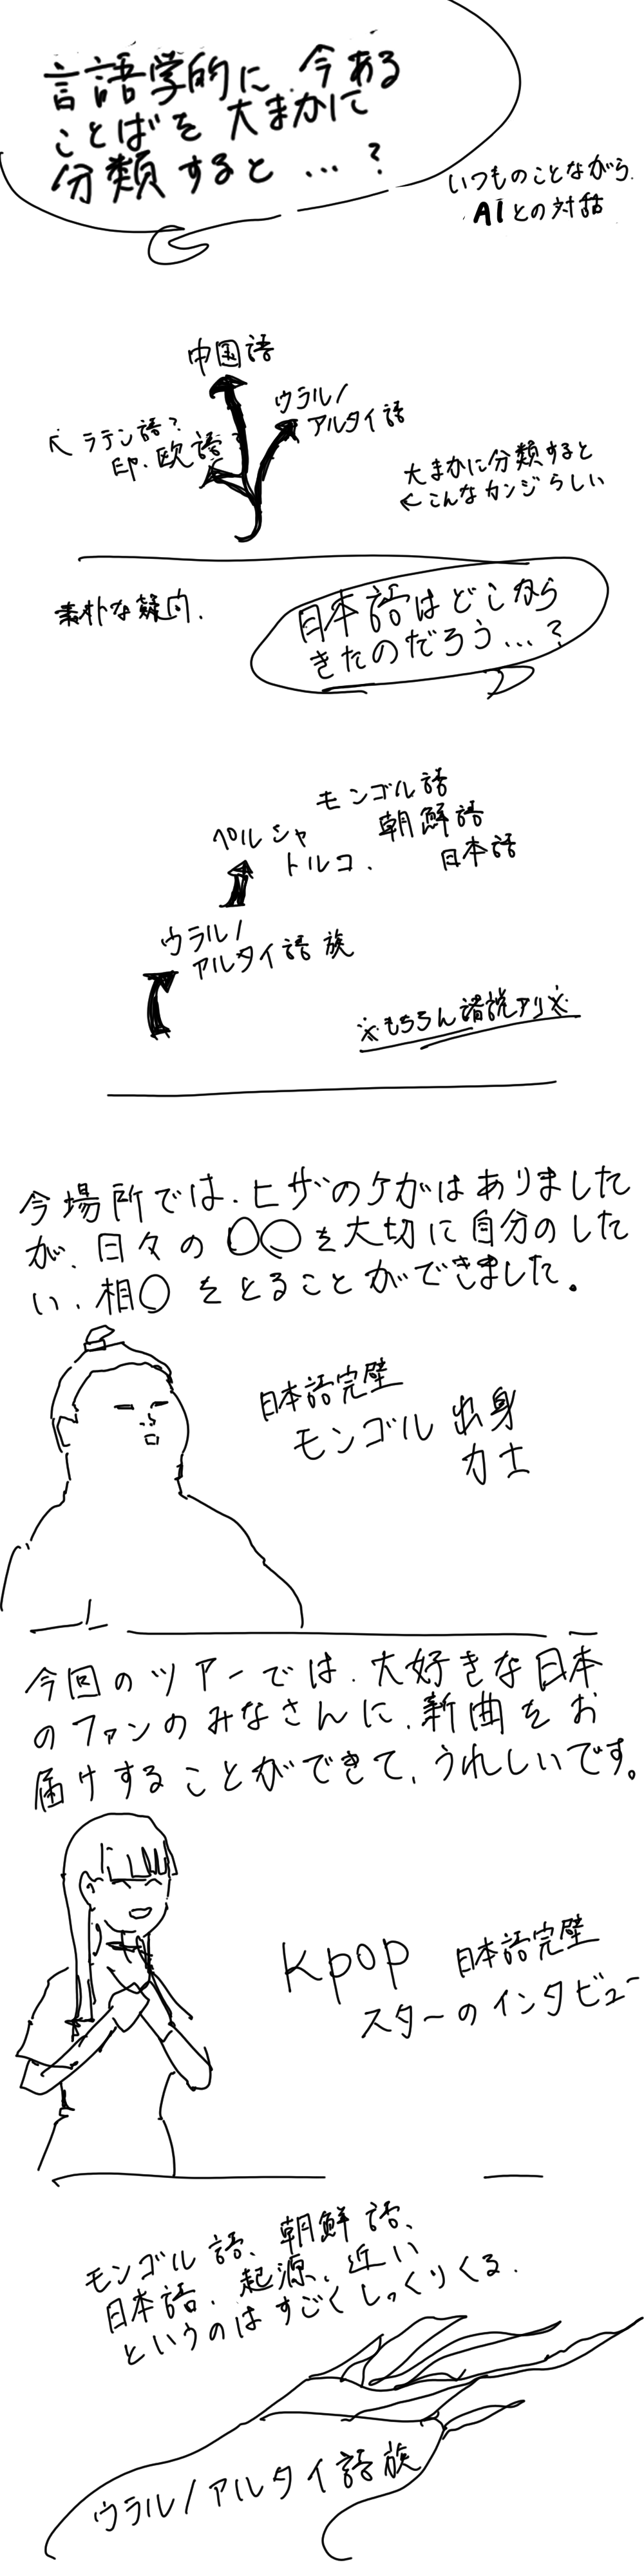 言語学的に 今ある
ことばを 大まかに
分類すると…?
いつものことながら.
AIとの対話
中国語
ウラル/
アルタイ語
ラテン語?
印.欧語
大まかに分類すると
←こんなカンジらしい
素朴な疑問.
日本語はどこから
きたのだろう…?
モンゴル語
ペルシャ 朝鮮語
トルコ. 日本語
ウラル/
アルタイ語族
※もちろん諸説アリ※
今場所では、ヒザのケがはありました
が、日々の〇〇を大切に自分のした
い、相〇をとることができました。
日本語完璧
モンゴル出身
力士
今回のツアーでは、大好きな日本
のファンのみなさんに、新曲をお
届けすることができて、うれしいです。
Kpop 日本語完璧
スターのインタビュー
モンゴル語、朝鮮語、
日本語、起源、近い
というのはすごくしっくりくる.
ウラル/アルタイ語族